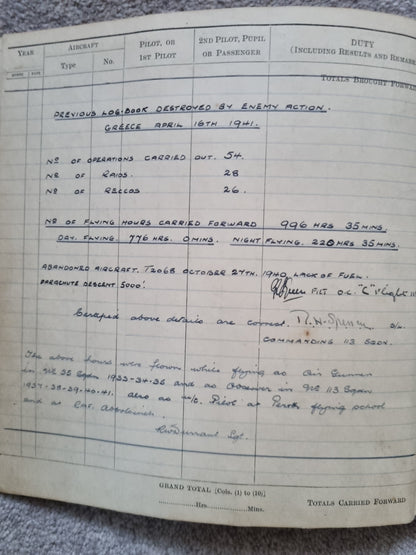 YEAR
AIRCRAFT
PILOT, OR
1ST PILOT
2ND PILOT, PUPIL
OR PASSENGER
DUTY
(INCLUDING RESULTS AND REMARK
MONTH DATE
Type No.
TOTALS BROUGHT FORWA
PREVIOUS LOG-BOOK DESTROYED BY ENEMY ACTION.
GREECE APRIL 16TH 1941.
Nº OF OPERATIONS CARRIED OUT. 54.
Nº OF RAIDS. 28
Nº OF RECCOS 26.
Nº OF FLYING HOURS CARRIED FORWARD 996 HRS 35 MINS.
DAY. FLYING. 776 HRS. 0 MINS. NIGHT FLYING. 220 HRS 35 MINS.
ABANDONED AIRCRAFT. T2068 OCTOBER 27TH. 1940. LACK OF FUEL.
PARACHUTE DESCENT 5000'. F/LT O.C. "C" Flight 11
above details are correct. R. H. Spencer S/L.
COMMANDING 113 SQDN.
The above hours were flown while flying as Air Gunner
in Nº Sqdn 1933-34-35 and as Observer in Nº 113 Sqdn
1937-38-39-40-41. also as Pilot at Perth flying school
and at
Sgt.
GRAND TOTAL [Cols. (1) to (10)].
Hrs. Mins.
TOTALS CARRIED FORWARD